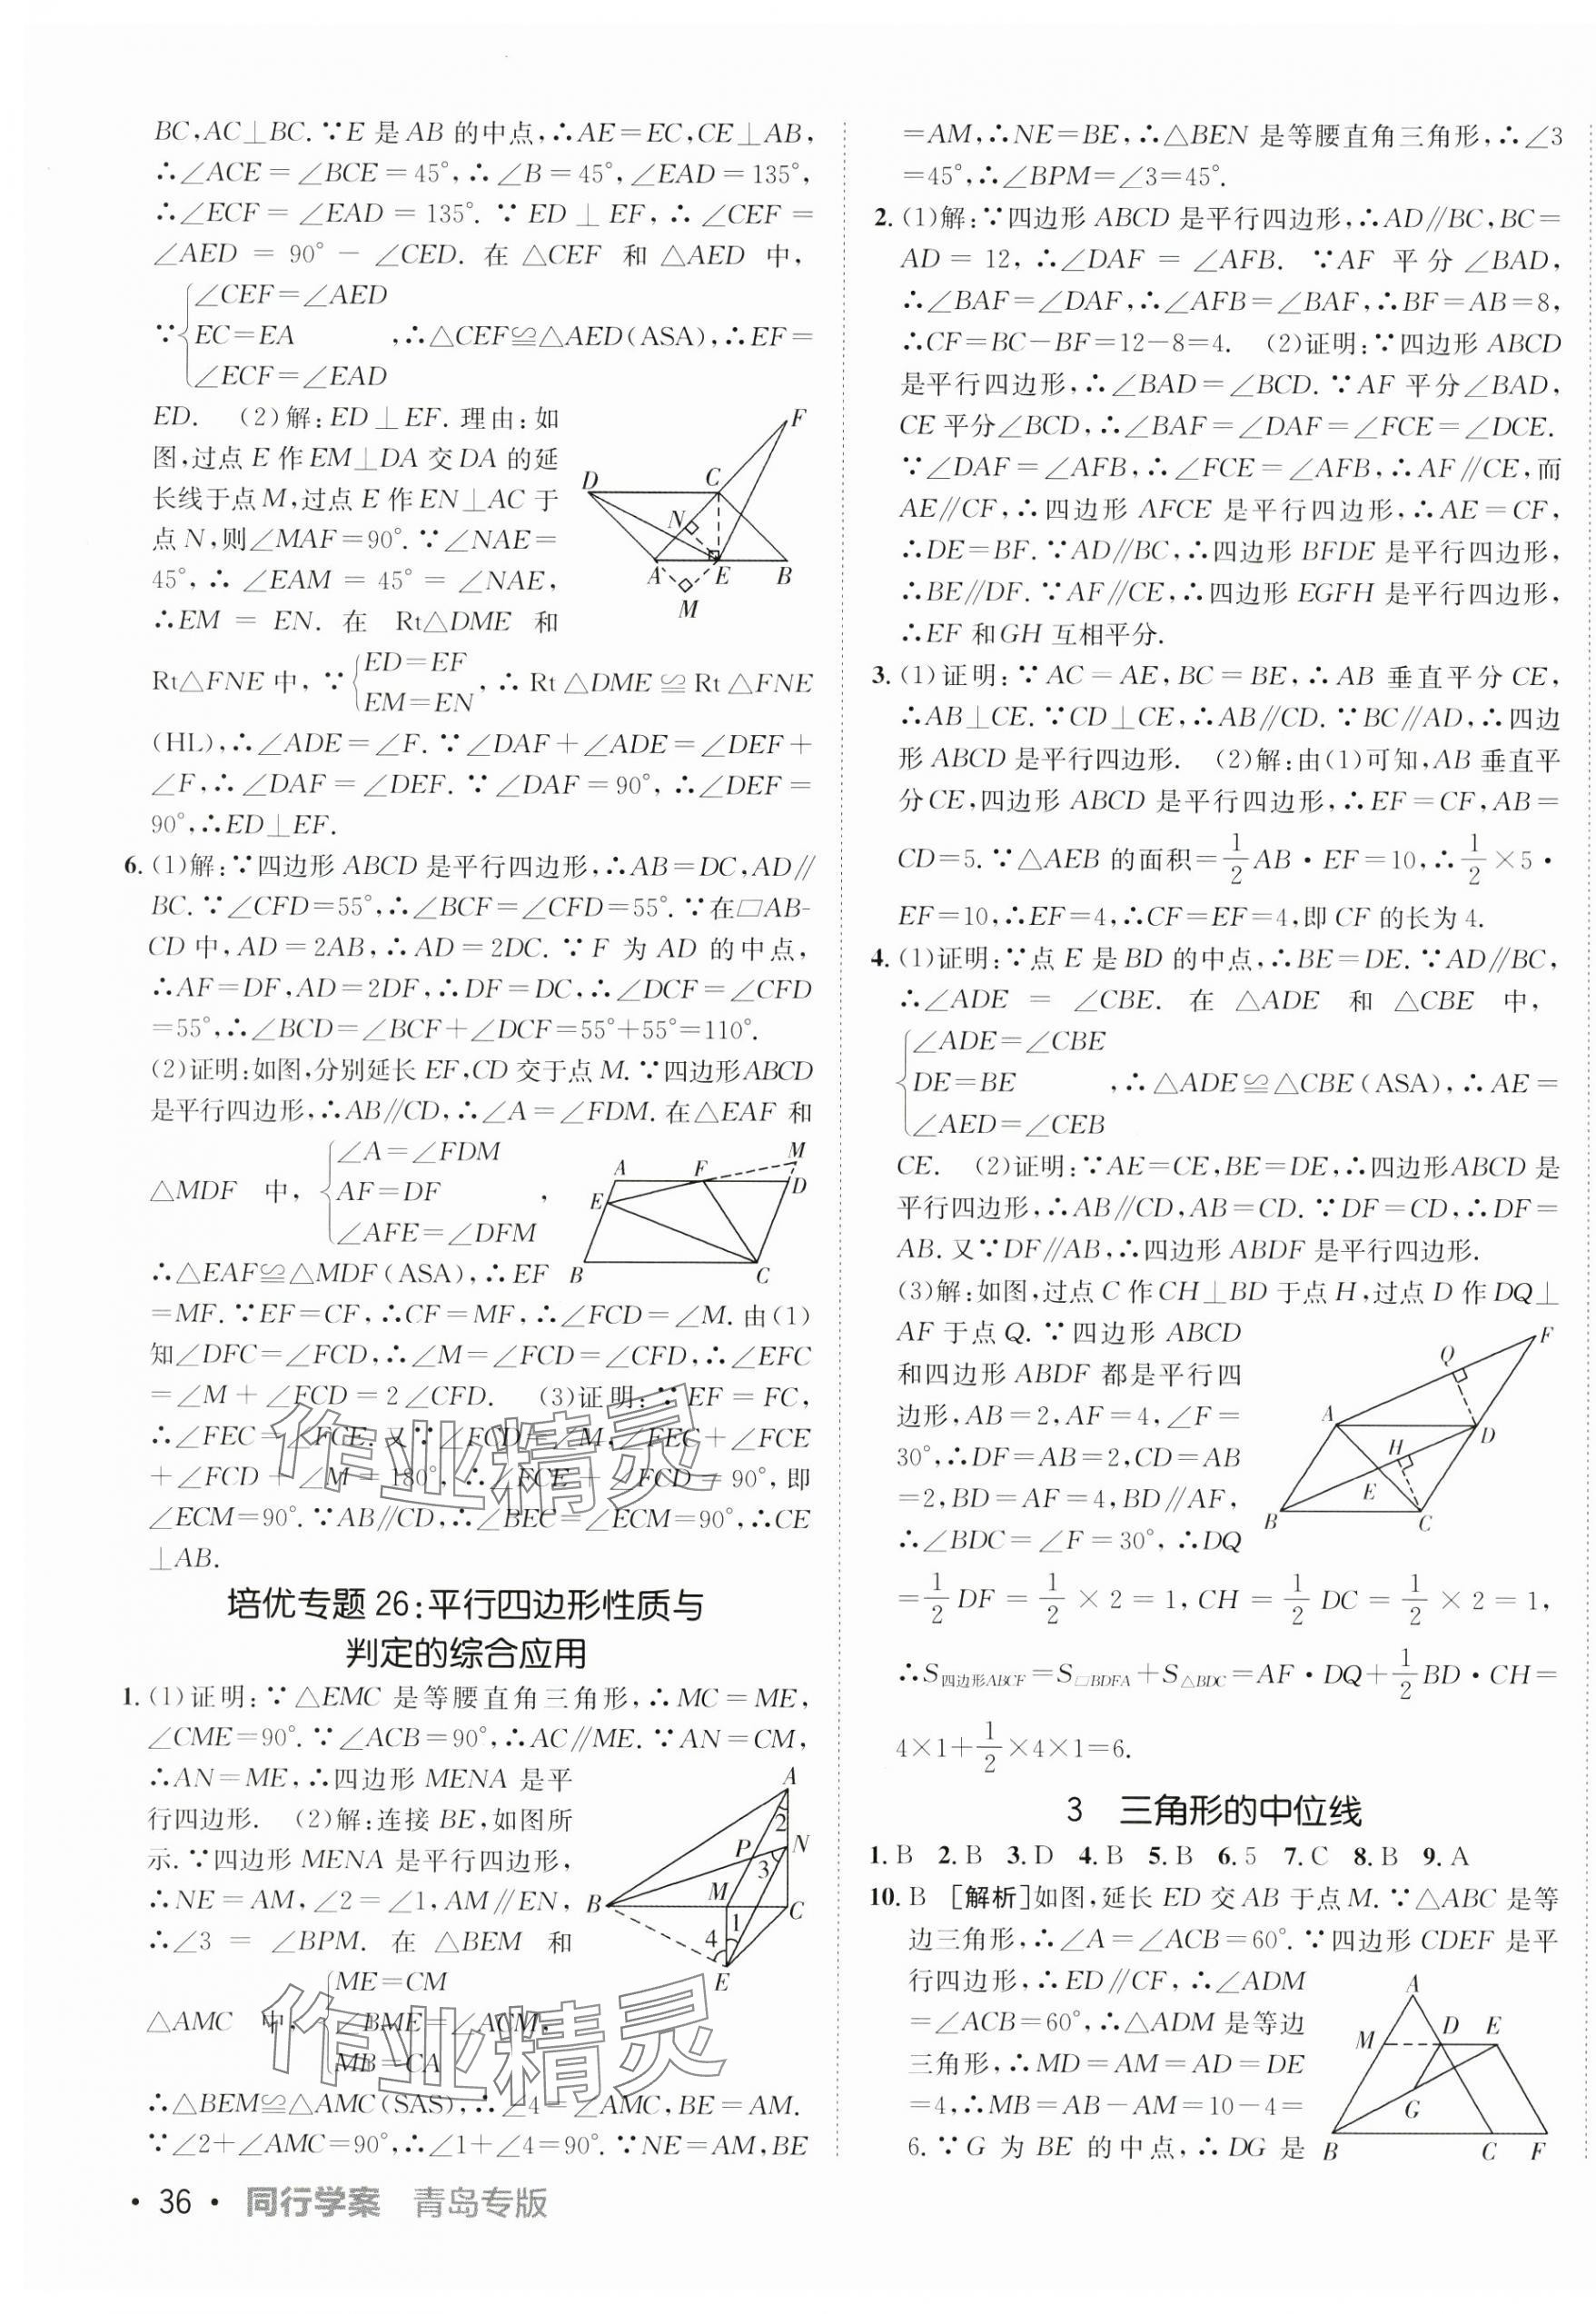 BC,AC⊥BC.∵E 是 AB 的中点,∴AE=EC,CE⊥AB,
∴∠ACE=∠BCE=45°,∴∠B=45°,∠EAD=135°,
∴∠ECF=∠EAD=135°.∵ED⊥EF,∴∠CEF=
∠AED=90°-∠CED.在△CEF 和△AED 中,
∠CEF=∠AED
∵{EC=EA ,∴△CEF≌△AED(ASA),∴EF=
∠ECF=∠EAD
ED. (2)解:ED⊥EF.理由:如
图,过点 E 作 EM⊥DA 交 DA 的延
长线于点 M,过点 E 作 EN⊥AC 于
点 N,则∠MAF=90°.∵∠NAE=
45°,∴∠EAM=45°=∠NAE,
∴EM=EN.在 Rt△DME 和
F
D
C
N
A
E
B
M
Rt△FNE 中,∵{ED=EF
EM=EN,∴Rt△DME≌Rt△FNE
(HL),∴∠ADE=∠F.∵∠DAF+∠ADE=∠DEF+
∠F,∴∠DAF=∠DEF.∵∠DAF=90°,∴∠DEF=
90°,∴ED⊥EF.
6.(1)解:∵四边形 ABCD 是平行四边形,∴AB=DC,AD∥
BC.∵∠CFD=55°,∴∠BCF=∠CFD=55°.∵在□AB-
CD 中,AD=2AB,∴AD=2DC.∵F 为 AD 的中点,
∴AF=DF,AD=2DF,∴DF=DC,∴∠DCF=∠CFD
=55°,∴∠BCD=∠BCF+∠DCF=55°+55°=110°.
(2)证明:如图,分别延长 EF,CD 交于点 M.∵四边形 ABCD
是平行四边形,∴AB∥CD,∴∠A=∠FDM.在△EAF 和
∠A=∠FDM
△MDF 中,{AF=DF ,
∠AFE=∠DFM
M
A
F
D
E
B
C
∴△EAF≌△MDF(ASA),∴EF
=MF.∵EF=CF,∴CF=MF,∴∠FCD=∠M.由(1)
知∠DFC=∠FCD,∴∠M=∠FCD=∠CFD,∴∠EFC
=∠M+∠FCD=2∠CFD. (3)证明:∵EF=FC,
∴∠FEC=∠FCE.又∵∠FCD=∠M,∠FEC+∠FCE
+∠FCD+∠M=180°,∴∠FCE+∠FCD=90°,即
∠ECM=90°.∵AB∥CD,∴∠BEC=∠ECM=90°,∴CE
⊥AB.
作业精灵
培优专题 26:平行四边形性质与
判定的综合应用
1.(1)证明:∵△EMC 是等腰直角三角形,∴MC=ME,
∠CME=90°.∵∠ACB=90°,∴AC∥ME.∵AN=CM,
∴AN=ME,∴四边形 MENA 是平
行四边形. (2)解:连接 BE,如图所
示.∵四边形 MENA 是平行四边形,
∴NE=AM,∠2=∠1,AM∥EN,
∴∠3=∠BPM.在△BEM 和
A
2
P
N
3
B
M
C
1
4
E
ME=CM
△AMC 中,{∠BME=∠ACM,
MB=CA
作业精灵
∴△BEM≌△AMC(SAS),∴∠4=∠AMC,BE=AM.
∵∠2+∠AMC=90°,∴∠1+∠4=90°.∵NE=AM,BE
• 36 • 同行学案 青岛专版
=AM,∴NE=BE,∴△BEN 是等腰直角三角形,∴∠3
=45°,∴∠BPM=∠3=45°.
2.(1)解:∵四边形 ABCD 是平行四边形,∴AD∥BC,BC=
AD=12,∴∠DAF=∠AFB.∵AF 平分∠BAD,
∴∠BAF=∠DAF,∴∠AFB=∠BAF,∴BF=AB=8,
∴CF=BC-BF=12-8=4. (2)证明:∵四边形 ABCD
是平行四边形,∴∠BAD=∠BCD.∵AF 平分∠BAD,
CE 平分∠BCD,∴∠BAF=∠DAF=∠FCE=∠DCE.
∵∠DAF=∠AFB,∴∠FCE=∠AFB,∴AF∥CE,而
AE∥CF,∴四边形 AFCE 是平行四边形,∴AE=CF,
∴DE=BF.∵AD∥BC,∴四边形 BFDE 是平行四边形,
∴BE∥DF.∵AF∥CE,∴四边形 EGFH 是平行四边形,
∴EF 和 GH 互相平分.
3.(1)证明:∵AC=AE,BC=BE,∴AB 垂直平分 CE,
∴AB⊥CE.∵CD⊥CE,∴AB∥CD.∵BC∥AD,∴四边
形 ABCD 是平行四边形. (2)解:由(1)可知,AB 垂直平
分 CE,四边形 ABCD 是平行四边形,∴EF=CF,AB=
CD=5.∵△AEB 的面积=1/2 AB·EF=10,∴1/2×5·
EF=10,∴EF=4,∴CF=EF=4,即 CF 的长为 4.
4.(1)证明:∵点 E 是 BD 的中点,∴BE=DE.∵AD∥BC,
∴∠ADE=∠CBE.在△ADE 和△CBE 中,
∠ADE=∠CBE
{DE=BE ,∴△ADE≌△CBE(ASA),∴AE=
∠AED=∠CEB
CE. (2)证明:∵AE=CE,BE=DE,∴四边形 ABCD 是
平行四边形,∴AB∥CD,AB=CD.∵DF=CD,∴DF=
AB.又∵DF∥AB,∴四边形 ABDF 是平行四边形.
(3)解:如图,过点 C 作 CH⊥BD 于点 H,过点 D 作 DQ⊥
AF 于点 Q.∵四边形 ABCD
和四边形 ABDF 都是平行四
边形,AB=2,AF=4,∠F=
30°,∴DF=AB=2,CD=AB
=2,BD=AF=4,BD∥AF,
∴∠BDC=∠F=30°,∴DQ
F
Q
A
D
H
E
B
C
=1/2 DF=1/2×2=1,CH=1/2 DC=1/2×2=1,
∴S四边形ABCF=S□BDFA+S△BDC=AF·DQ+1/2 BD·CH=
4×1+1/2×4×1=6.
3 三角形的中位线
1.B 2.B 3.D 4.B 5.B 6.5 7.C 8.B 9.A
10.B [解析]如图,延长 ED 交 AB 于点 M.∵△ABC 是等
边三角形,∴∠A=∠ACB=60°.∵四边形 CDEF 是平
行四边形,∴ED∥CF,∴∠ADM
=∠ACB=60°,∴△ADM 是等边
三角形,∴MD=AM=AD=DE
=4,∴MB=AB-AM=10-4=
6.∵G 为 BE 的中点,∴DG 是
A
M
D
E
G
B
C
F